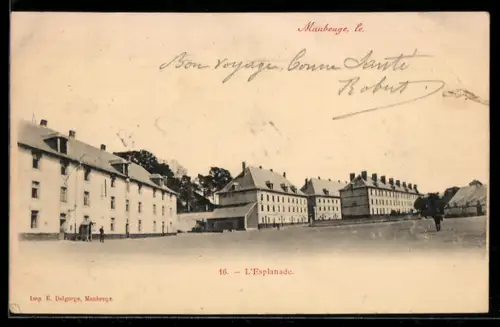 Maubeuge, le
Bon Voyage, Bonne Santé
Robert
16. - L'Esplanade.
Imp. E. Delgorge, Maubeuge.